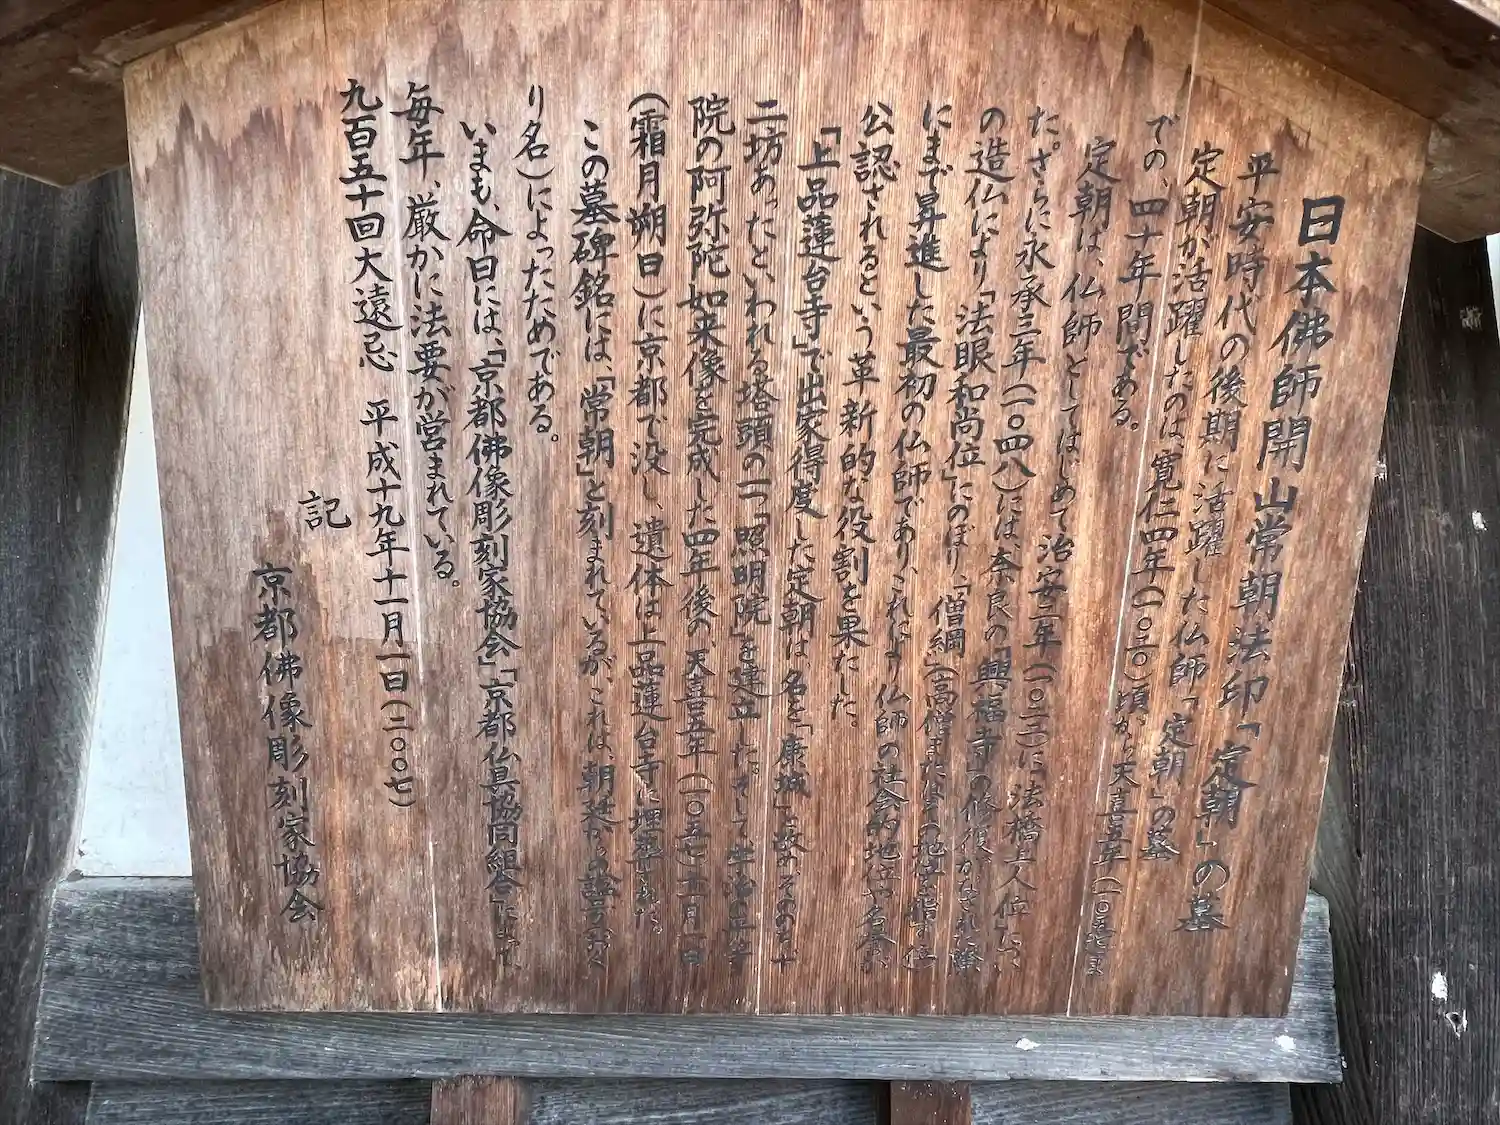 日本佛師開山常朝法印「定朝」の墓
平安時代の後期に活躍した仏師「定朝」の墓
定朝が活躍したのは、寛仁四年(一〇二〇)頃から天喜五年(一〇五七)ま
での、四十年間である。
定朝は、仏師としてはじめて治安二年(一〇二二)に「法橋上人位」につい
た。さらに永承三年(一〇四八)には、奈良の「興福寺」の修復がなされた際
の造仏により「法眼和尚位」にのぼり、「僧綱」(高僧または の地位を指す位)
にまで昇進した最初の仏師であり、これにより仏師の社会的地位や名声が
公認されるという革新的な役割を果たした。
「上品蓮台寺」で出家得度した定朝は、名を「康城」と改め、その
二坊あったといわれる塔頭の一つ「照明院」を建立した。そして宇治の平等
院の阿弥陀如来像を完成した四年後の、天喜五年(一〇五七)十一月一日
(霜月朔日)に京都で没し、遺体は上品蓮台寺に埋葬された。
この墓碑銘には、「常朝」と刻まれているが、これは、朝廷からの諡号(おく
り名)によったためである。
いまも、命日には、「京都佛像彫刻家協会」「京都仏具協同組合」によって、
毎年、厳かに法要が営まれている。
九百五十回大遠忌 平成十九年十一月一日(二〇〇七)
記
京都佛像彫刻家協会